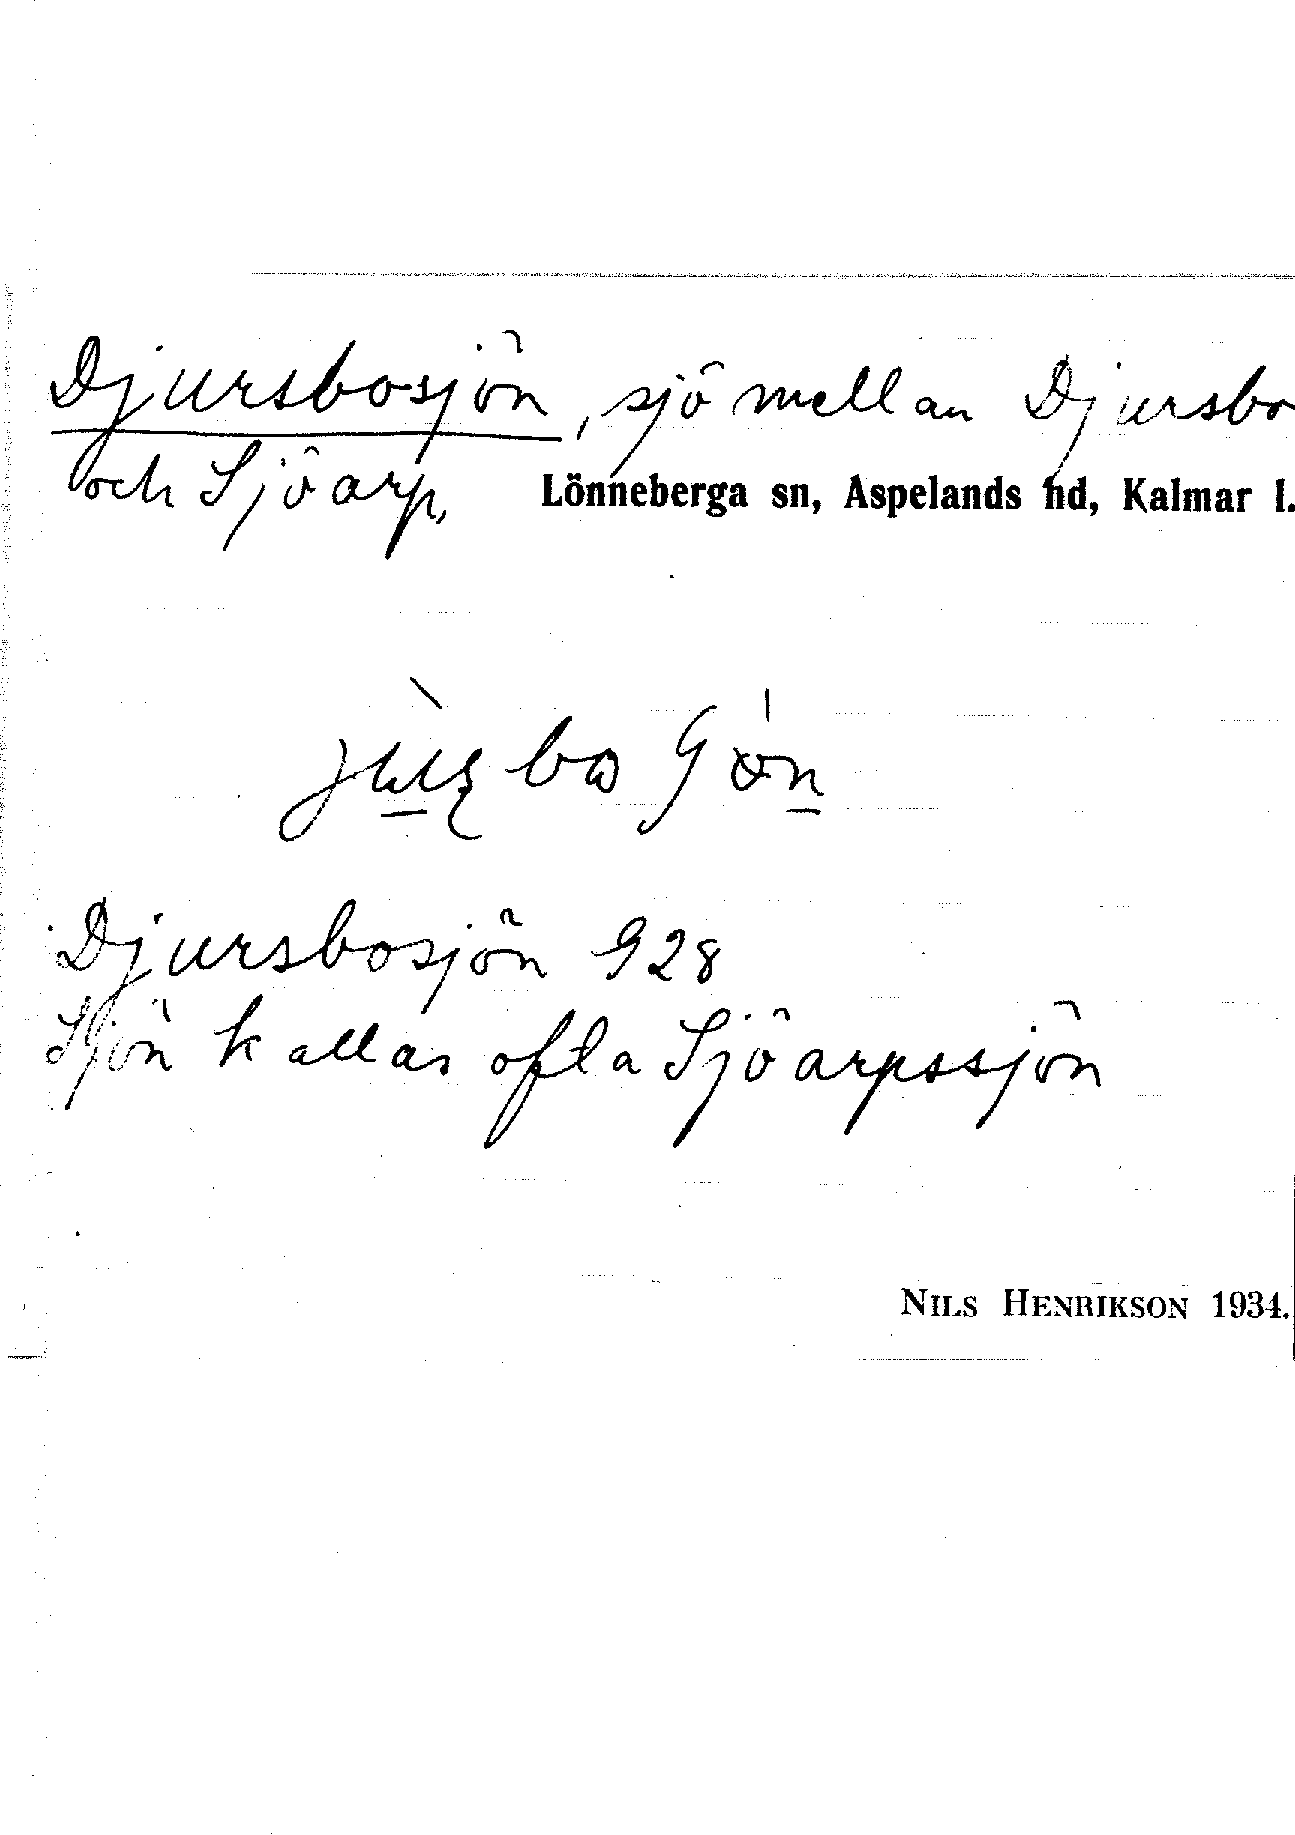 Djursbosjön, sjö mellan Djursbo
och Sjöarp,
Lönneberga sn, Aspelands hd, Kalmar l.
Djursbosjön G28
Sjön kallas ofta Sjöarpssjön
NILS HENRIKSON 1934.